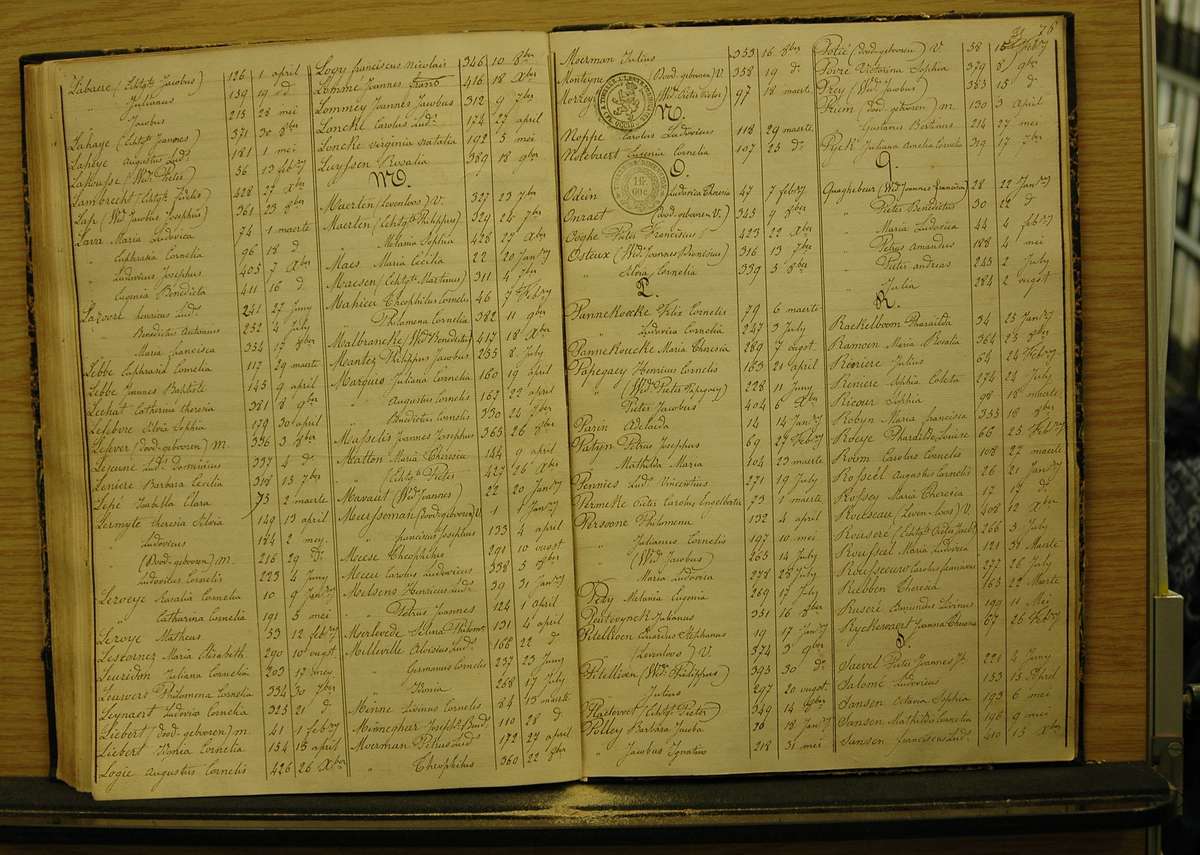 Labaere (Echtgte Jacobus) 126 1 april
" Julianus 139 19 d°
" Jacobus 213 28 mei
Lahaye (Echtgte Joannes) 371 30 8ber
Laheye Augustus Lud. 181 1 mei
Lahousse (Wde Pieter) 56 13 feb 7
Lambrecht (Echtgte Fidelis) 428 27 Xber
Lap (Wde Jacobus Josephus) 361 23 8ber
Lava Maria Ludovica 74 1 maerte
" Euphrasia Cornelia 96 18 d°
" Ludovicus Josephus 405 7 Xber
" Eugenia Benedicta 411 16 d°
Lavoort henricus Lud. 241 27 Juny
" Benedictus Antonius 252 4 July
" Maria francisca 354 17 8ber
Lebbe Euphrasie Cornelia 112 29 maerte
Lebbe Joannes Baptiste 145 9 april
Lechat Catherina theresia 381 8 9ber
Lefebvre Silvia Sophia 179 30 april
Lefever (dood-geboren) M. 336 3 8ber
Lejeune Lud. Dominicus 337 4 d°
Leniere Barbara Cecilia 318 15 7ber
Lepé Isabella Clara 75 2 maerte
Lermyte theresia Silvia 149 13 april
" Ludovicus 184 2 mey
" (Dood-geboren) M. 216 29 d°
" Ludovicus Cornelis 223 4 Juny
Leroeye Rosalia Cornelia 10 9 Jan 7
" Catharina Cornelia 191 5 mei
Leroye Matheus 53 12 feb 7
Lestornez Maria Elisabeth 290 10 ougst
Leuredon Juliana Cornelia 203 17 mey
Leuwers Philomena Cornelia 334 30 7ber
Leynaert Ludovica Cornelia 325 21 d°
Liebert (dood-geboren) M. 41 1 feb 7
Liebert Xenia Cornelia 154 15 april
Logie Augustus Cornelis 426 26 Xber
Logy franciscus nicolais 346 10 8ber
Lomme Joannes Frans 416 18 Xber
Lommey Joannes Jacobus 312 9 7ber
Loncke Carolus Lud. 174 27 april
Loncke virginia natalia 192 5 mei
Luyssen Rosalia 389 18 9ber
M.
Maerten (levenloos) V. 327 23 7ber
Maerten (Echtgte Philippus) 329 26 7ber
" Melania Sophia 428 27 Xber
Maes Maria Cecilia 22 20 Jan 7
Maesen (Echtgte Martinus) 311 4 7ber
Mahieu Theophilus Cornelis 46 7 feb 7
" Philomena Cornelia 382 11 9ber
Malbrancke (Wde Benedictus) 417 18 Xber
Mantez Philippus Jacobus 255 8 July
Marquis Juliana Cornelia 160 19 april
" Augustus Cornelis 162 22 april
" Benedictus Cornelis 330 26 7ber
Masselis Joannes Josephus 365 26 8ber
Matton Maria Theresia 144 9 april
" (Echtgte Pieter) 427 26 Xber
Mavaut (Wde Joannes) 22 20 Jan 7
Meerssoman (dood-geboren) V. 1 1 Jan 7
" franciscus Josephus 133 4 april
Meese Theophilus 291 10 ougst
Meeuw Carolus Ludovicus 338 5 8ber
Melsens Henricus Lud. 39 31 Jan 7
" Petrus Joannes 124 1 april
Meerlevede Selina Philom. 131 4 april
Milleville Aloisius Lud. 166 22 d°
" Germanus Cornelis 237 23 Juny
" Xenia 268 17 July
Minne Livinus Cornelis 84 13 maerte
Minnegheer Joseph Lud. 110 28 d°
Moerman Petrus Lud. 172 27 april
" Theophilus 360 22 8ber
Moerman Julius 353 16 8ber
Monteyne (Dood-geboren) V. 358 19 d°
Morzey (Wde Pieter Victor) 97 18 maerte
N.
Noppe Carolus Ludovicus 118 29 maerte
Notebaert Eugenia Cornelia 107 25 d°
O.
Odein Ludovica Theresia 47 7 feb 7
Onraet (dood-geboren V.) 343 9 8ber
Ooghe Pieter Franciscus 423 22 Xber
Osteux (Wde Joannes) 316 13 7ber
" Silvia Cornelia 339 5 8ber
P.
Pannekoecke Felix Cornelis 79 6 maerte
" Ludovica Cornelia 247 3 July
Pannekoucke Maria Theresia 289 7 ougst
Papegaey Henricus Cornelis 163 21 april
" (Wde Pieter Papegaey) 228 11 Juny
" Pieter Jacobus 404 6 Xber
Parin Adelaida 14 14 Jan 7
Patyn Petrus Josephus 69 27 feb 7
" Mathilda Maria 104 23 maerte
Pennies Lud. Vincentius 271 19 July
Permeke Pieter Carolus Engelbertus 73 1 maerte
Persoone Philomena 132 4 april
" Julianus Cornelis 197 10 mei
" (Wde Jacobus) 265 14 July
" Maria Ludovica 278 28 July
Pety Melania Eugenia 269 17 July
Peuteoynck Julianus 351 16 8ber
Pitellioen Eduardus Stephanus 19 17 Jan 7
" (Levenloos) V. 374 3 9ber
Pitellioen (Wde Philippus) 393 30 d°
" Julius 297 20 ougst
Plaetevoet (Echtgte Pieter) 349 14 8ber
Polley Barbara Jacoba 20 18 Jan 7
" Jacobus Ignatius 218 31 mei
76
Potié (dood-geboren) V. 58 15 feb 7
Povre Victorina Sophia 379 8 9ber
Prey (Wde Jacobus) 383 13 d°
Pruim (dood-geboren) M. 130 3 april
" Gustaves Bertinus 214 27 mei
Pyck Juliana Amelia Cornelia 319 17 7ber
Q.
Quaghebeur (Wde Joannes franciscus) 28 22 Jan 7
" Pieter Benedictus 30 22 d°
" Maria Ludovica 44 4 feb 7
" Petrus Amandus 188 4 mei
" Pieter andreas 245 2 July
" Julia 284 2 ougst
R.
Raekelboom Pharaïlda 34 25 Jan 7
Ramoen Maria Rosalia 364 25 8ber
Reniere Julius 64 24 feb 7
Reniere Sophia Coleta 274 24 July
Ricour Sophia 98 18 maerte
Robyn Maria francisca 355 18 8ber
Roeye Pharaïlde Louise 66 25 feb 7
Roim Carolus Cornelis 108 27 maerte
Rosseel Augustus Cornelis 26 21 Jan 7
Rossey Maria Theresia 17 17 d°
Roelseau (Leven-loos) V. 408 12 Xber
Rousere (Echtgte Pieter Jacob) 246 3 July
Roussel Maria Ludovica 121 31 Maerte
Rousseeuw Carolus Joannes 277 26 July
Rubben Theresia 165 22 Maerte
Ruserie Amandus Livinus 199 11 Mei
Ryckewaert Joanna Theresia 67 26 feb 7
S.
Saevel Pieter Joannes Jh. 221 4 Juny
Salomé Ludovicus 153 15 April
Sansen Octavia Sophia 193 6 mei
Sansen Mathilda Cornelia 196 9 mei
Sansen franciscus Lud. 410 15 Xber